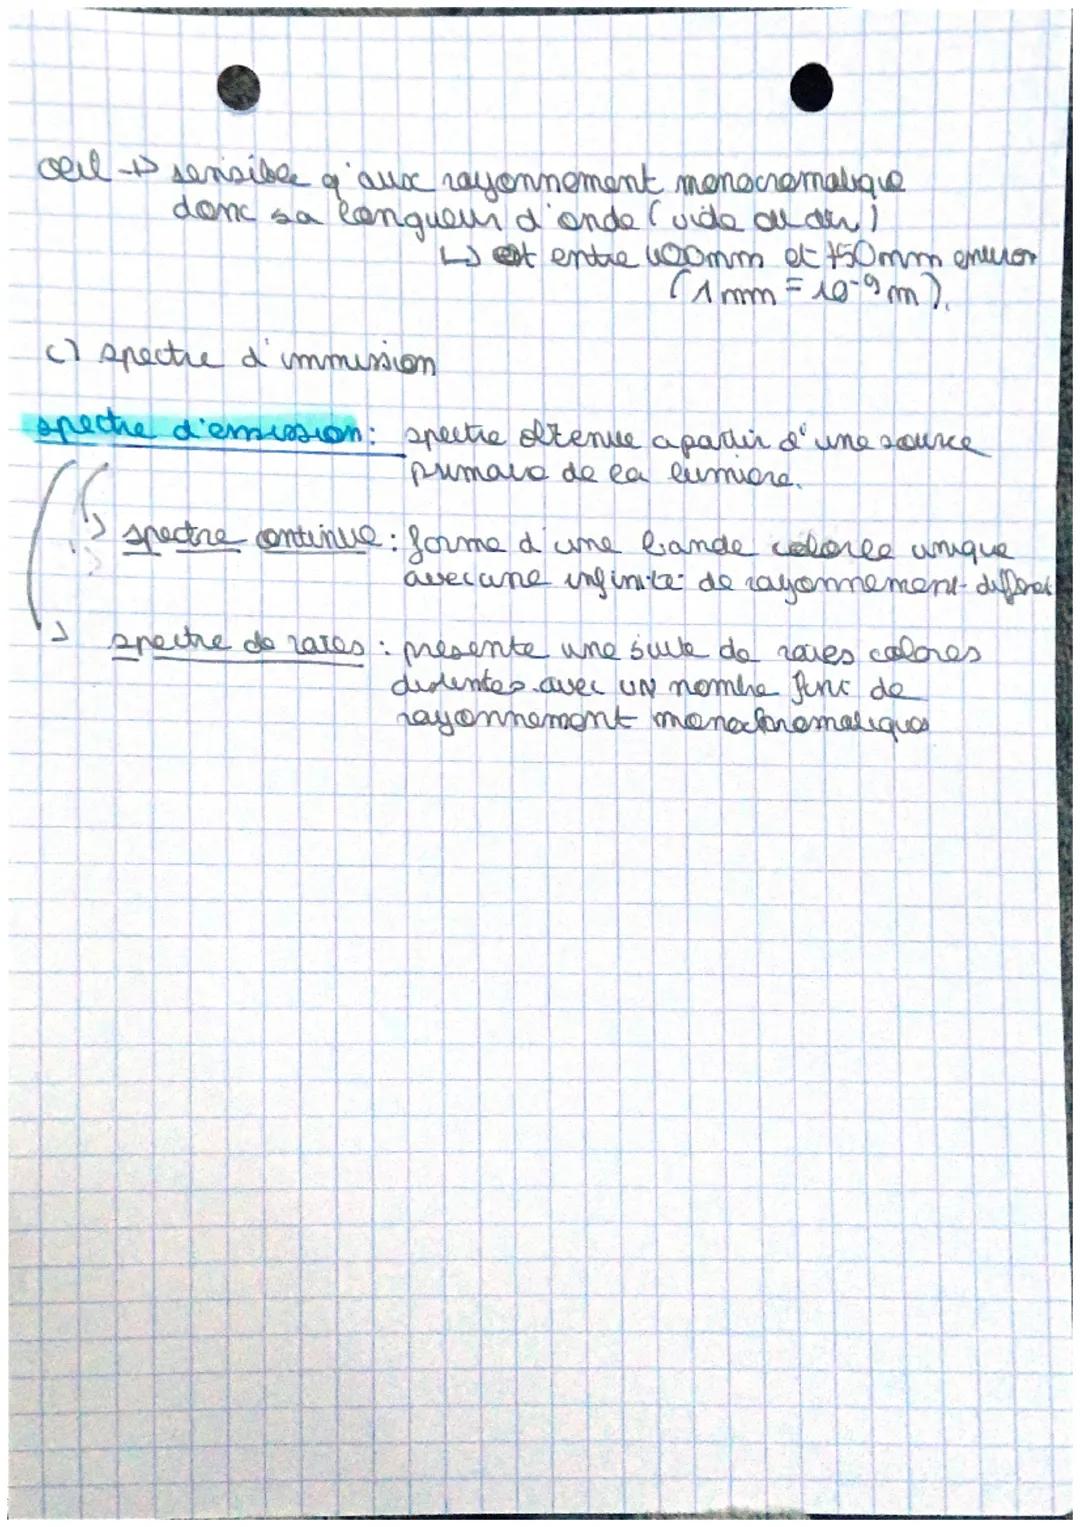 oeil → sensible q'aux rayonnement monocromatique
donc sa longueur d'onde (vide ou air)
↳ est entre 400nm et 750nm environ
(1nm = 10⁻⁹ m).
c) spectre d'immission
spectre d'emission : spectre obtenue a partir d'une source
primaire de la lumiere.
spectre continue : forme d'une bande coloree unique
avec une infinite de rayonnement differet
spectre de raies : presente une suite de raies colores
distentes avec un nombre fini de
rayonnement monochromatiques